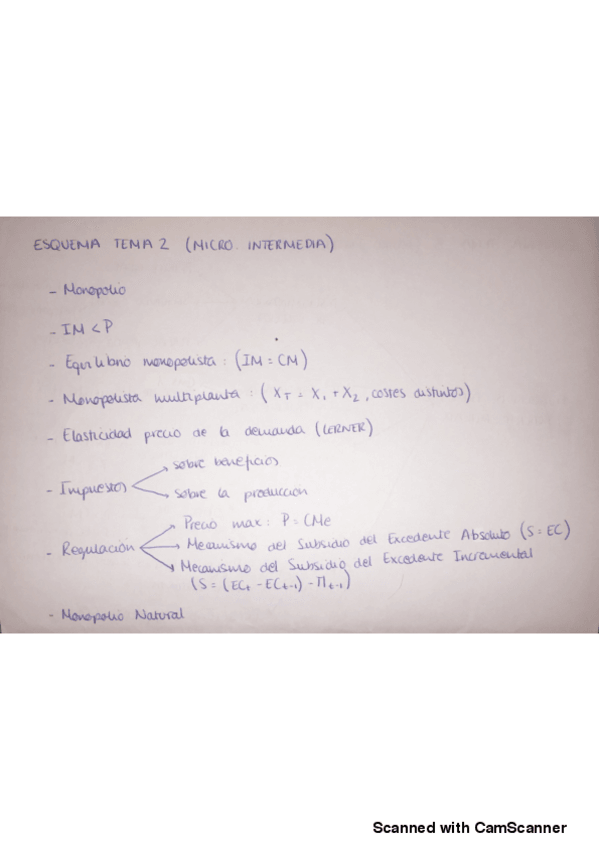 ESQUEMA TEMA 2 (MICRO. INTERMEDIA)
- Monopolio
- IM < P
- Equilibrio monopolista : (IM = CM)
- Monopolista multiplanta : ( X_T = X_1 + X_2 , costes distintos)
- Elasticidad precio de la demanda (LERNER)
sobre beneficios
- Impuestos
sobre la producción
Precio max : P = CMe
Mecanismo del Subsidio del Excedente Absoluto (S = EC)
- Regulación
Mecanismo del Subsidio del Excedente Incremental
(S = (EC_t - EC_t-1) - Π_t-1)
- Monopolio Natural
Scanned with CamScanner